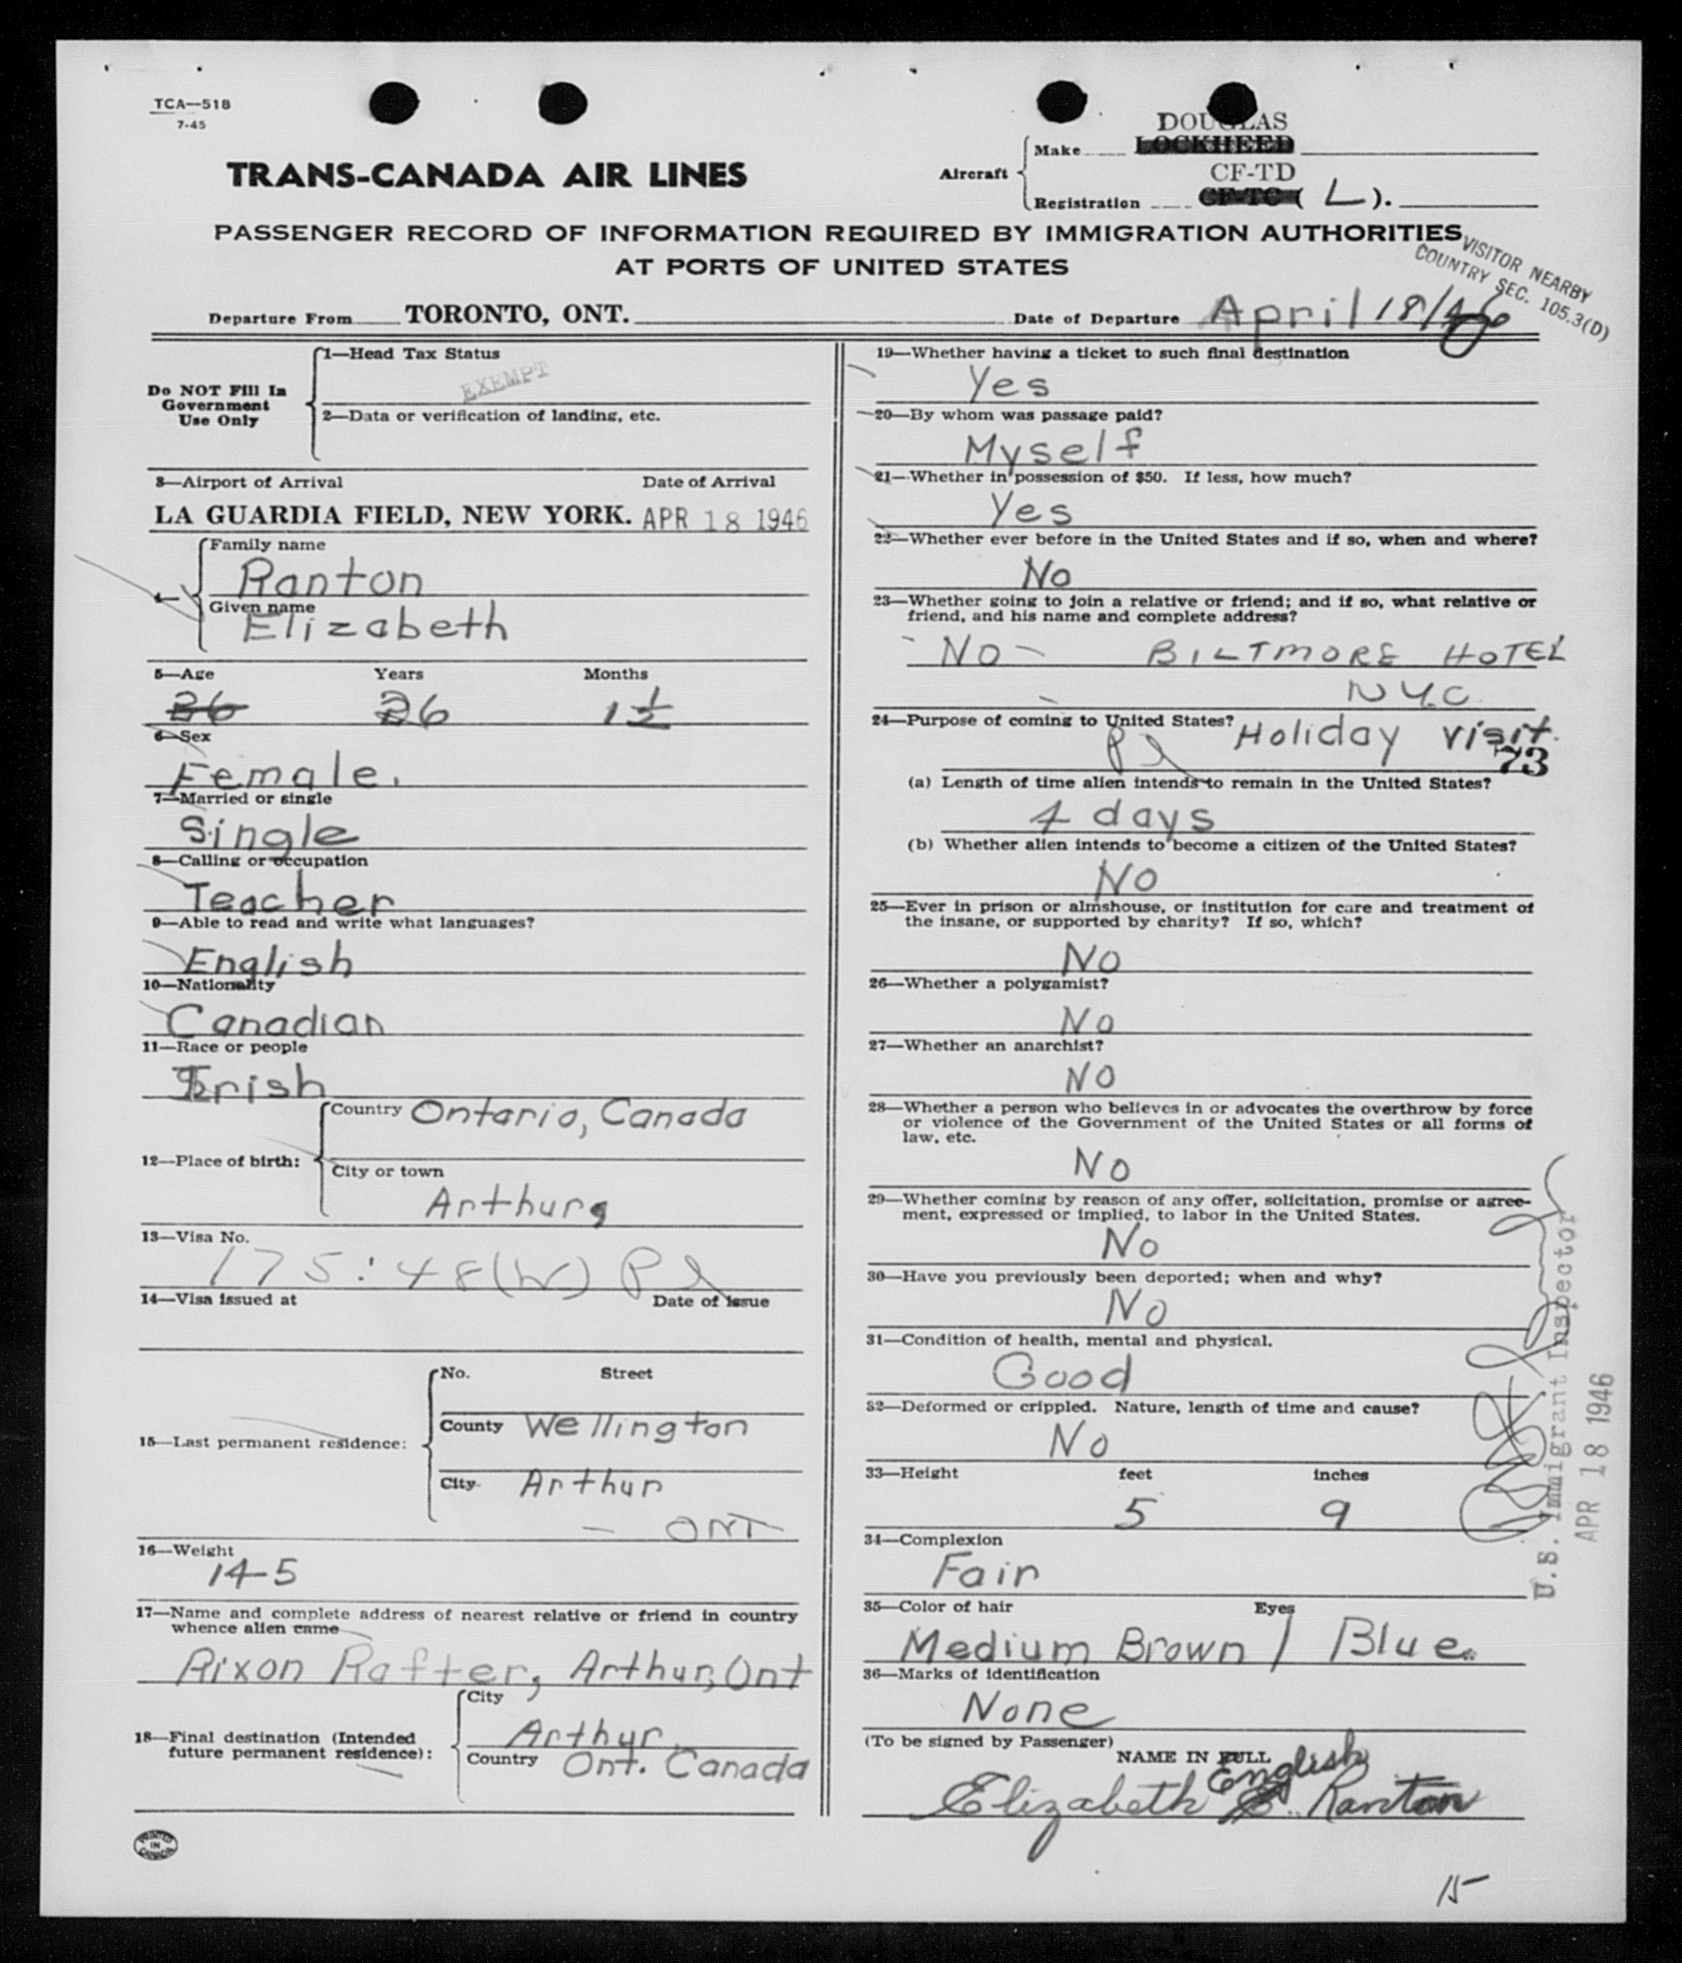 TCA—518
7-45
TRANS-CANADA AIR LINES
Aircraft
Make DOUGLAS
LOCKHEED
Registration CF-TD
CF-TC ( L ).
PASSENGER RECORD OF INFORMATION REQUIRED BY IMMIGRATION AUTHORITIES
AT PORTS OF UNITED STATES
VISITOR NEARBY
COUNTRY SEC. 105.3(D)
Departure From TORONTO, ONT. Date of Departure April 18/46
Do NOT Fill In
Government
Use Only
1—Head Tax Status
EXEMPT
2—Data or verification of landing, etc.
3—Airport of Arrival Date of Arrival
LA GUARDIA FIELD, NEW YORK. APR 18 1946
4—
Family name
Ranton
Given name
Elizabeth
5—Age Years Months
26 26 1 1/2
6—Sex
Female.
7—Married or single
Single
8—Calling or occupation
Teacher
9—Able to read and write what languages?
English
10—Nationality
Canadian
11—Race or people
Irish
12—Place of birth:
Country Ontario, Canada
City or town
Arthur
13—Visa No.
175:48(W)
14—Visa issued at Date of issue
15—Last permanent residence:
No. Street
County Wellington
City Arthur
— ONT
16—Weight
145
17—Name and complete address of nearest relative or friend in country
whence alien came
Rixon Rafter, Arthur, Ont
18—Final destination (Intended
future permanent residence):
City
Arthur
Country Ont. Canada
PRINTED
IN
CANADA
19—Whether having a ticket to such final destination
Yes
20—By whom was passage paid?
Myself
21—Whether in possession of $50. If less, how much?
Yes
22—Whether ever before in the United States and if so, when and where?
No
23—Whether going to join a relative or friend; and if so, what relative or
friend, and his name and complete address?
No — BILTMORE HOTEL
N.Y.C.
24—Purpose of coming to United States? Holiday visit.
73
(a) Length of time alien intends to remain in the United States?
4 days
(b) Whether alien intends to become a citizen of the United States?
No
25—Ever in prison or almshouse, or institution for care and treatment of
the insane, or supported by charity? If so, which?
No
26—Whether a polygamist?
No
27—Whether an anarchist?
No
28—Whether a person who believes in or advocates the overthrow by force
or violence of the Government of the United States or all forms of
law, etc.
No
29—Whether coming by reason of any offer, solicitation, promise or agree-
ment, expressed or implied, to labor in the United States.
No
30—Have you previously been deported; when and why?
No
31—Condition of health, mental and physical.
Good
32—Deformed or crippled. Nature, length of time and cause?
No
33—Height feet inches
5 9
34—Complexion
Fair
35—Color of hair Eyes
Medium Brown / Blue
36—Marks of identification
None
(To be signed by Passenger)
NAME IN FULL
Elizabeth English Ranton
U.S. Immigrant Inspector
APR 18 1946
15